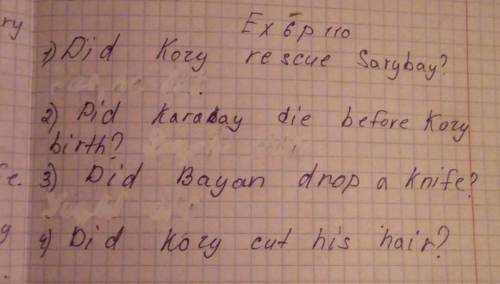 ry
Ex 6 p 110
1) Did Kozy rescue Sarybay?
2) Did Karabay die before Kozy
birth?
fe. 3) Did Bayan drop a knife?
y
4) Did Kozy cut his hair?